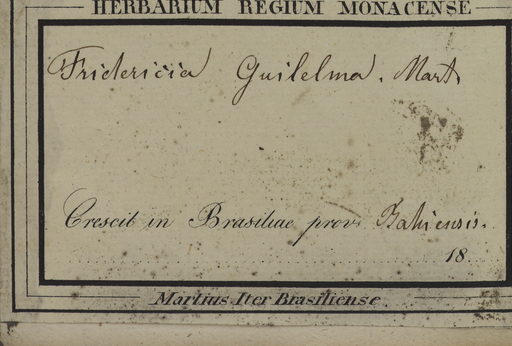 HERBARIUM REGIUM MONACENSE
Fridericia Guilelma. Mart.
Crescit in Brasiliae prov. Bahiensis.
18
Martius Iter Brasiliense.